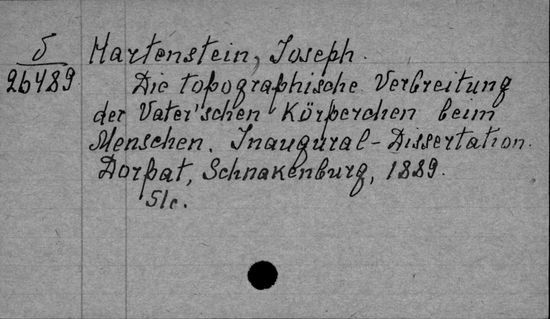 5
26489
Martenstein, Joseph.
Die topographische Verbreitung
der Vater'schen Körperchen beim
Menschen. Inaugural-Dissertation.
Dorpat, Schnakenburg, 1889.
Slc.